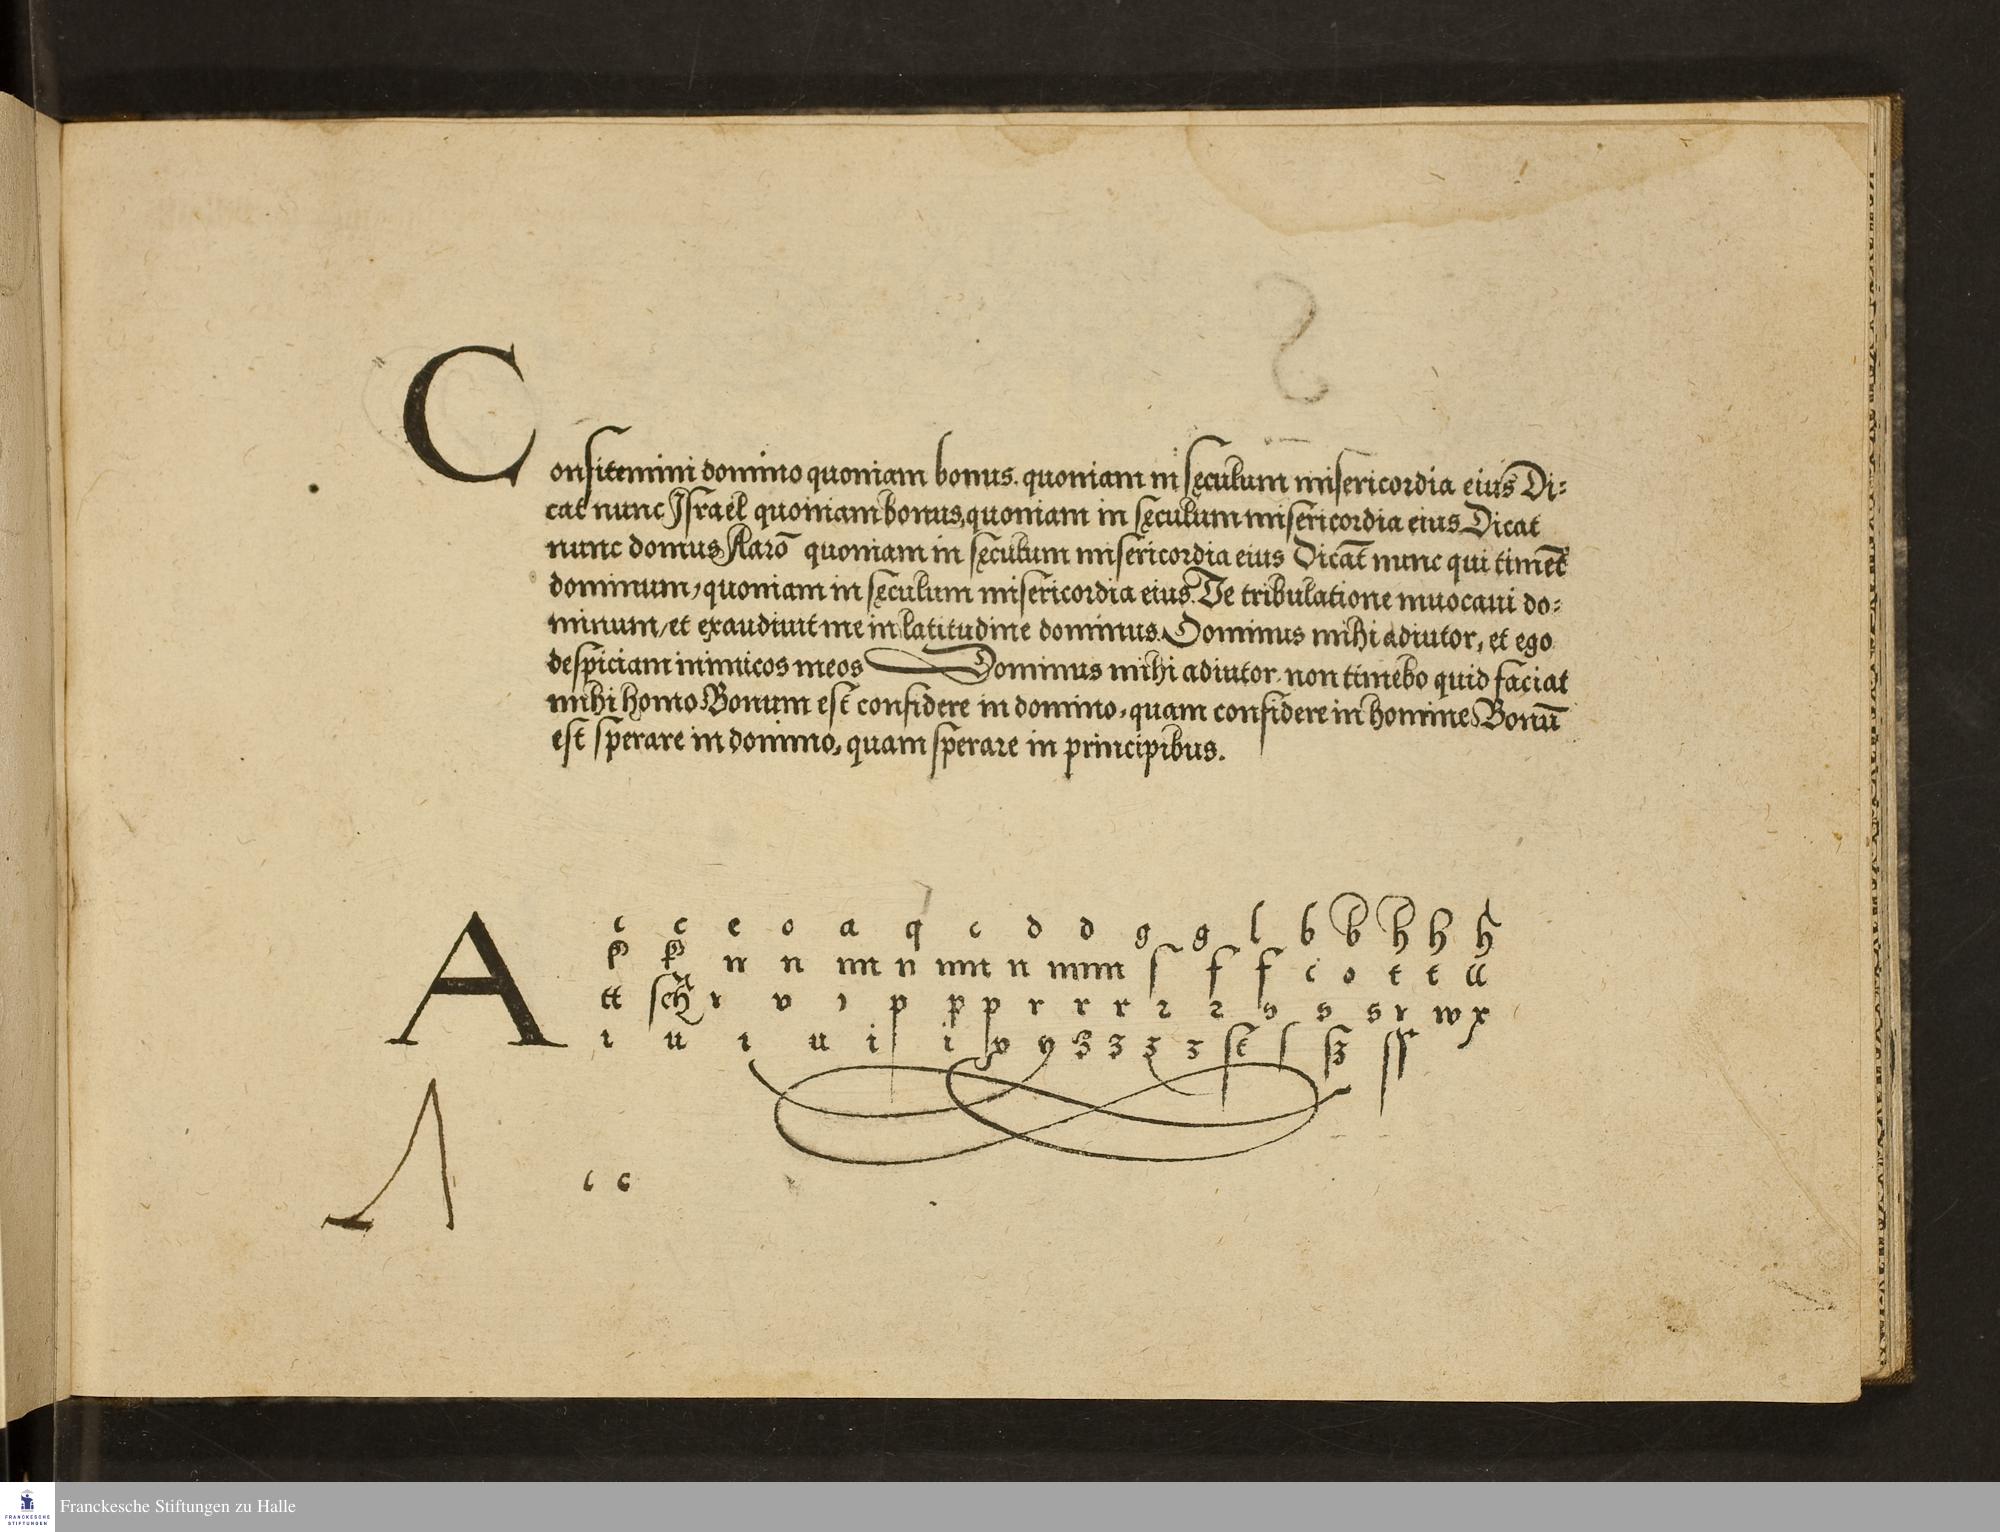 Confitemini domino quoniam bonus. quoniam in sęculum misericordia eius Di⸗
cat nunc Israel quoniam bonus, quoniam in sęculum misericordia eius Dicat
nunc domus Aarō quoniam in sęculum misericordia eius Dicāt nunc qui timēt
dominum, quoniam in sęculum misericordia eius. De tribulatione inuocaui do⸗
minum, et exaudiuit me in latitudine dominus. Dominus mihi adiutor, et ego
despiciam inimicos meos Dominus mihi adiutor, non timebo quid faciat
mihi homo Bonum est confidere in domino, quam confidere in homine Bonū
est sperare in domino, quam sperare in principibus.
A c c e o a q c d d g g l b b h h h
n n m n m n m ſ f f c o t t ll
tt sch r v p p p r r r 2 2 s s s r w x
ı u ı u i i y y 3 3 3 3 st ſ ß ſſ
c c
Franckesche Stiftungen zu Halle
FRANCKESCHE
STIFTUNGEN